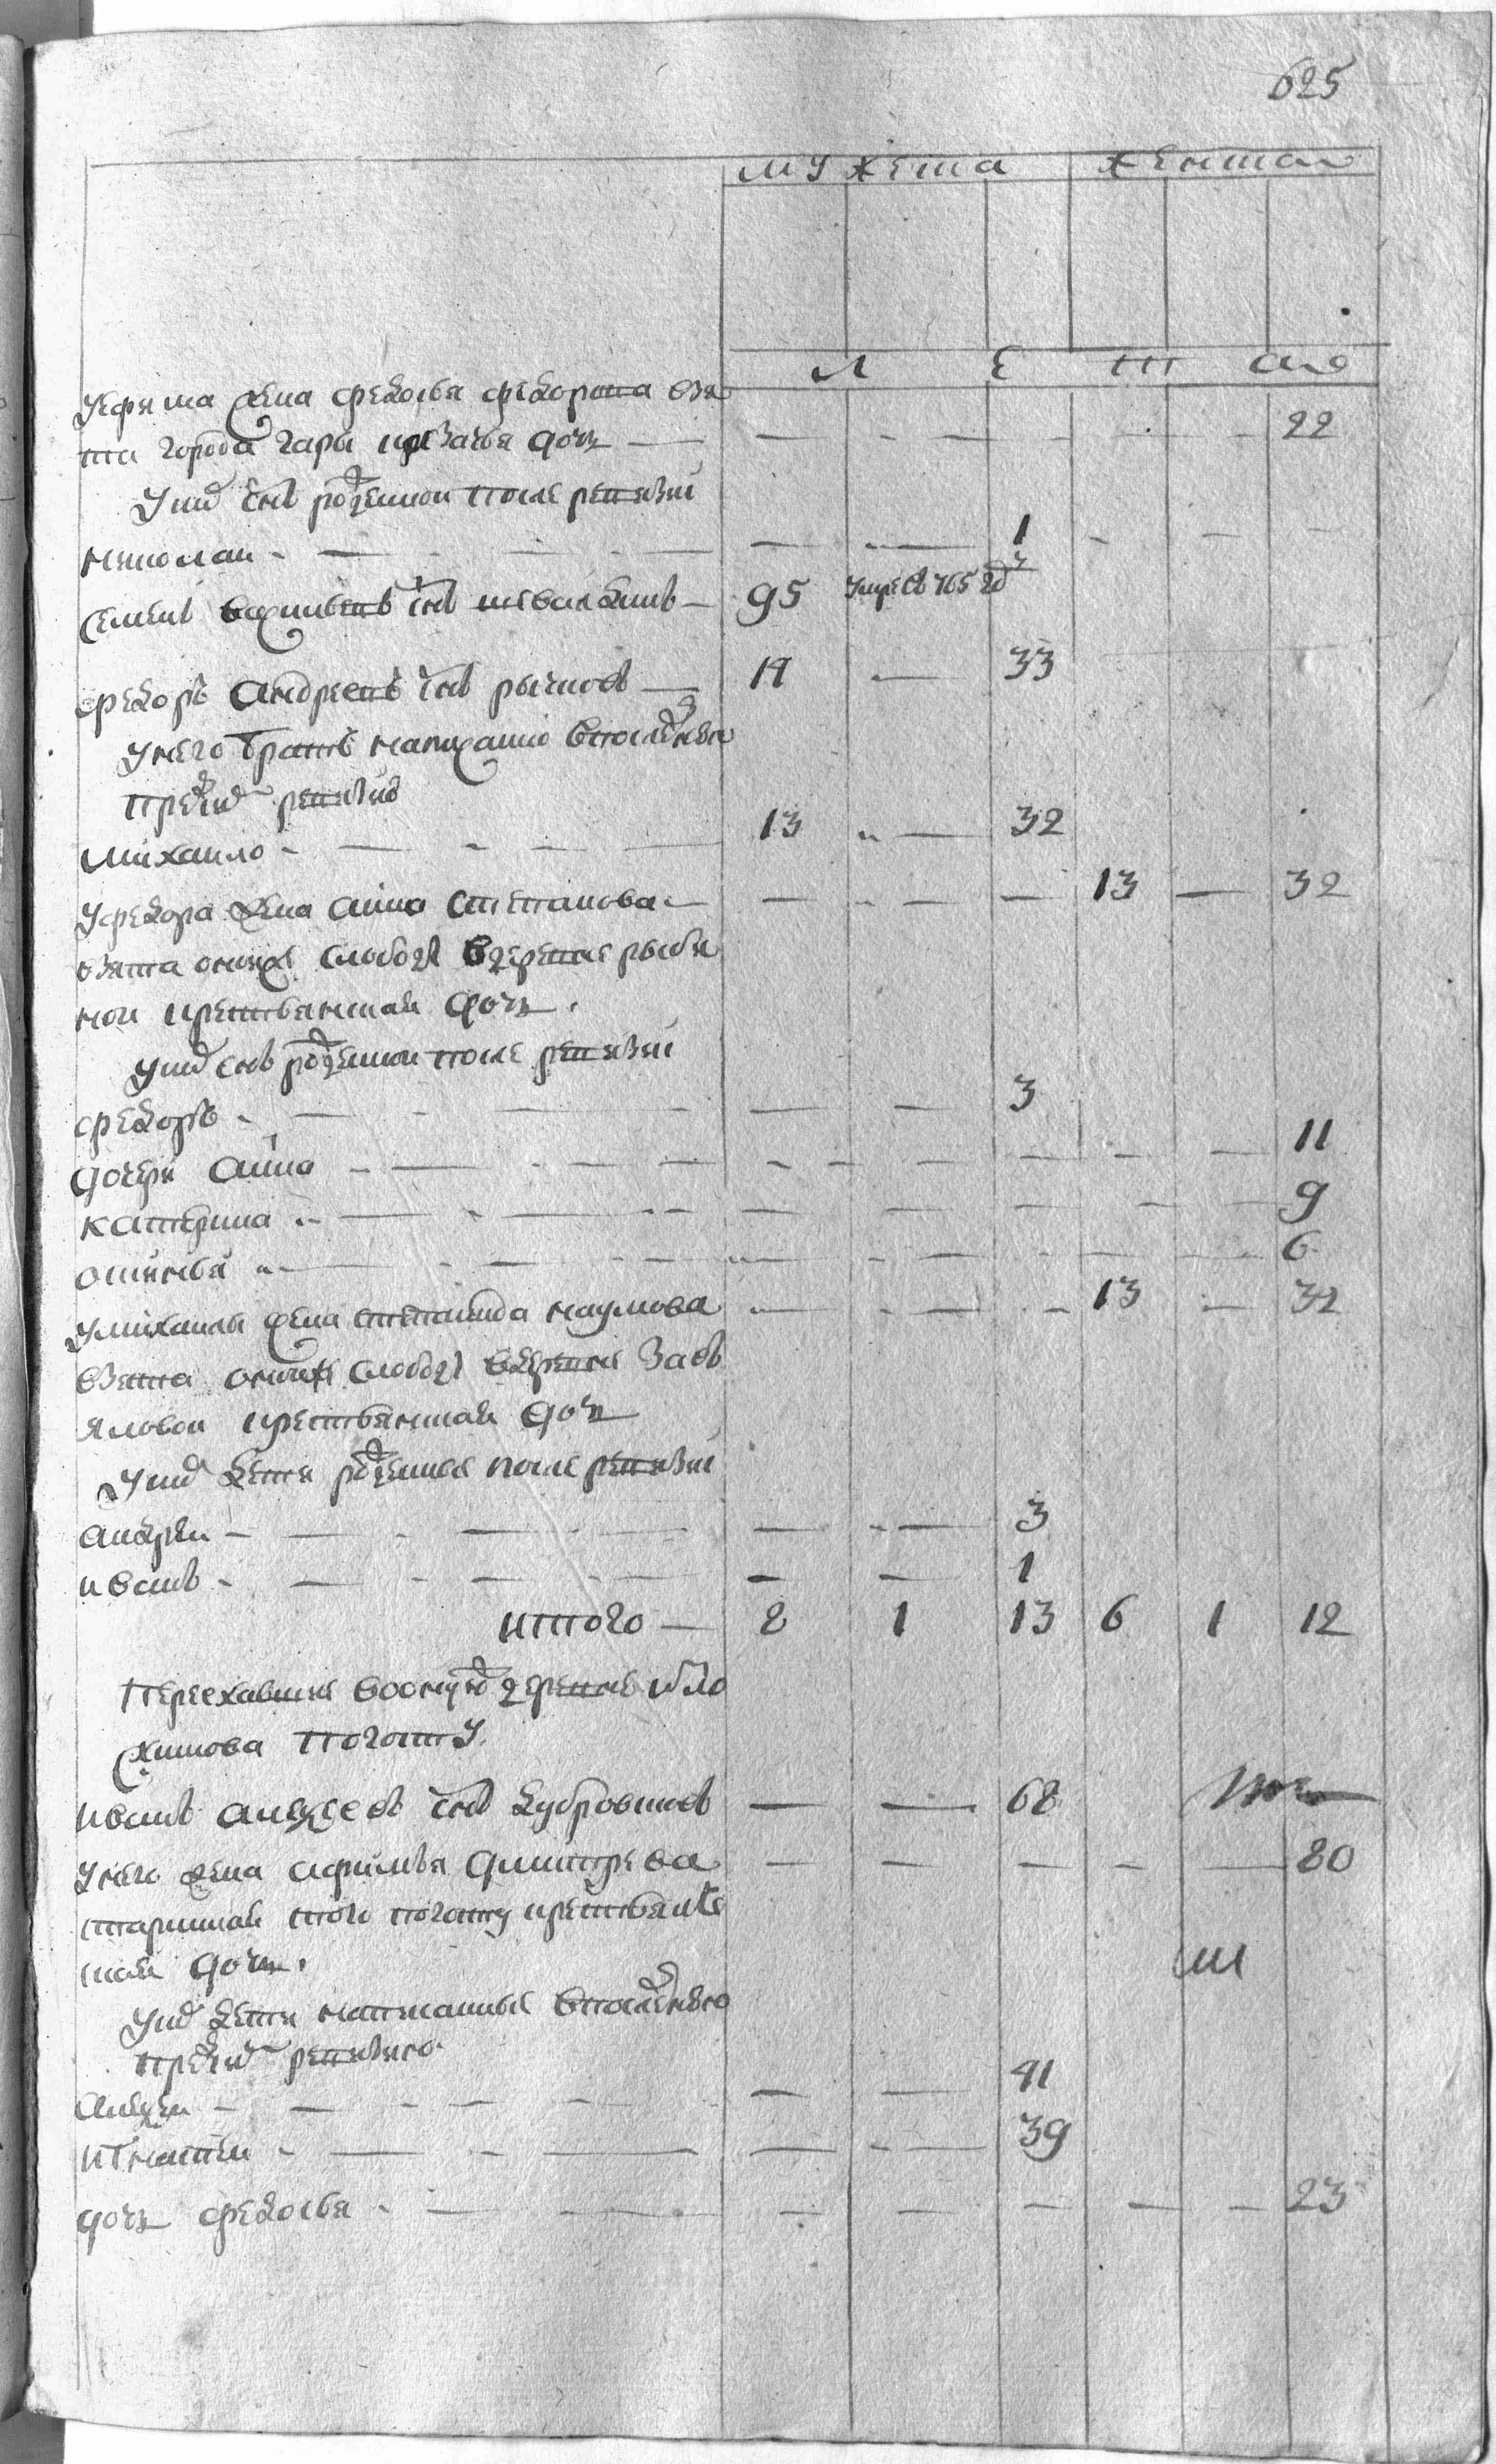 625
мужеска женска
л е т ам
Уефима жена федосья федорова взя
та города тары казачья дочь — 22
У них сынъ рожденной после ревизии
николаи — 1
Семенъ сынъ 95 умре въ 765 году
федоръ андреевъ сынъ рычковъ — 14 — 33
У него братъ написанно в последнею
пред сию ревизию
михаило — 13 — 32
У федора жена анна степанова — 13 — 32
взята оныя слободы в деревне рыбъи
нои крестьянская дочь
у них сынъ рожденной после ревизии
федоръ — 3
дочери анна — 11
катерина — 9
офимья — 6
У михаилы жена степанида наумова — 13 — 32
взята оныя слободы деревне
яловои крестьянская дочь
У них дети рожденные после ревизии
андреи — 3
иванъ — 1
итого — 8 1 13 6 1 12
Переехавшие во оную деревню из ло
гинова погосту
иванъ алексеевъ сынъ дубровинъ — 68
У него жена афимья дмитрева — 80
старинная того погосту крестьянс
кая дочь
У них дети написанные в последнею
пред сию ревизию
андреи — 41
игнатеи — 39
дочь федосья — 23